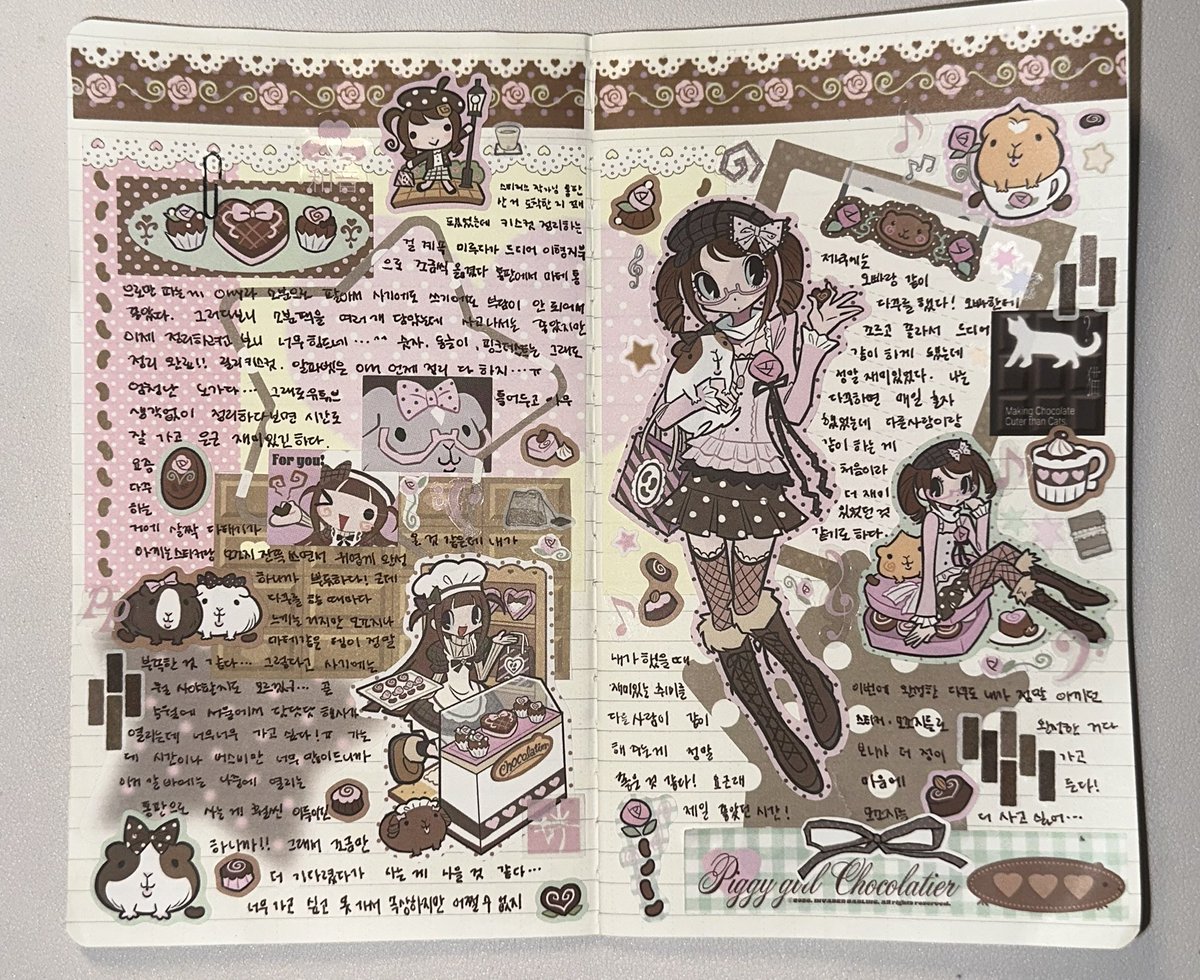 스티커는 작가님 통판
산 거 도착한 지 꽤
됐었는데 키스컷 정리하는
걸 계속 미루다가 드디어 이행지부
으로 조금씩 옮겼다 통판에서 마테 통
으로만 파는데 om라 소분으로 팔아서 사기에도 쓰기에도 부담이 안 되어서
좋았다. 그러다보니 소분떡을 여러개 담았는데 사고나서는 좋았지만
이제 정리하려고 보니 너무 힘드네…^^ 숫자, 동물이, 핑크데스는 그래도
정리 완료!! 컬러키스컷, 알파벳은 om 언제 정리 다 하지…ㅠ
엄청난 노가다… 그래도 유튜브 틀어두고 아무
생각없이 정리하다보면 시간도
잘 가고 은근 재미있긴 하다.
For you!
요즘
다꾸
하는
거에 살짝 다태기가 올 것 같은데 내가
아끼는 스티커랑 모꼬지 잔뜩 쓰면서 귀엽게 완성
하니까 뿌듯하다! 근데
다꾸를 할 때마다
느끼는 거지만 모꼬지나
마테같은 템이 정말
부족한 것 같다… 그렇다고 사기에는
뭘 사야할지도 모르겠구… 곧
5월에 서울에서 담닷닷 행사가
열리는데 너무너무 가고 싶다!ㅠ 가는
데 시간이나 버스비만 너무 많이 드니까
아게 알 바에는 나중에 열리는
통판으로 사는 게 훨씬 이득이긴
하니까!! 그래서 조금만
더 기다렸다가 사는 게 나을 것 같다…
너무 가고 싶고 못 가서 속상하지만 어쩔 수 없지
Chocolatier
저녁에는
오빠랑 같이
다꾸를 했다! 오빠한테
조르고 졸라서 드디어
같이 하게 됐는데
정말 재미있었다. 나는
다꾸하면 매일 혼자
했었는데 다른사람이랑
같이 하는 게
처음이라
더 재미
있었던 것
같기도 하다.
Making Chocolate
Cuter than Cats.
내가 했을 때
재미있는 취미를
다른 사람이 같이
해 주는게 정말
좋은 것 같다! 요근래
제일 좋았던 시간!
이번에 완성한 다꾸도 내가 정말 아끼던
스티커·모꼬지들로 완성한 거다
보니까 더 정이 가고
마음에 든다!
모꼬지는 더 사고 싶어…
Piggy girl Chocolatier
©2020. INVADER DARLING. All rights reserved.